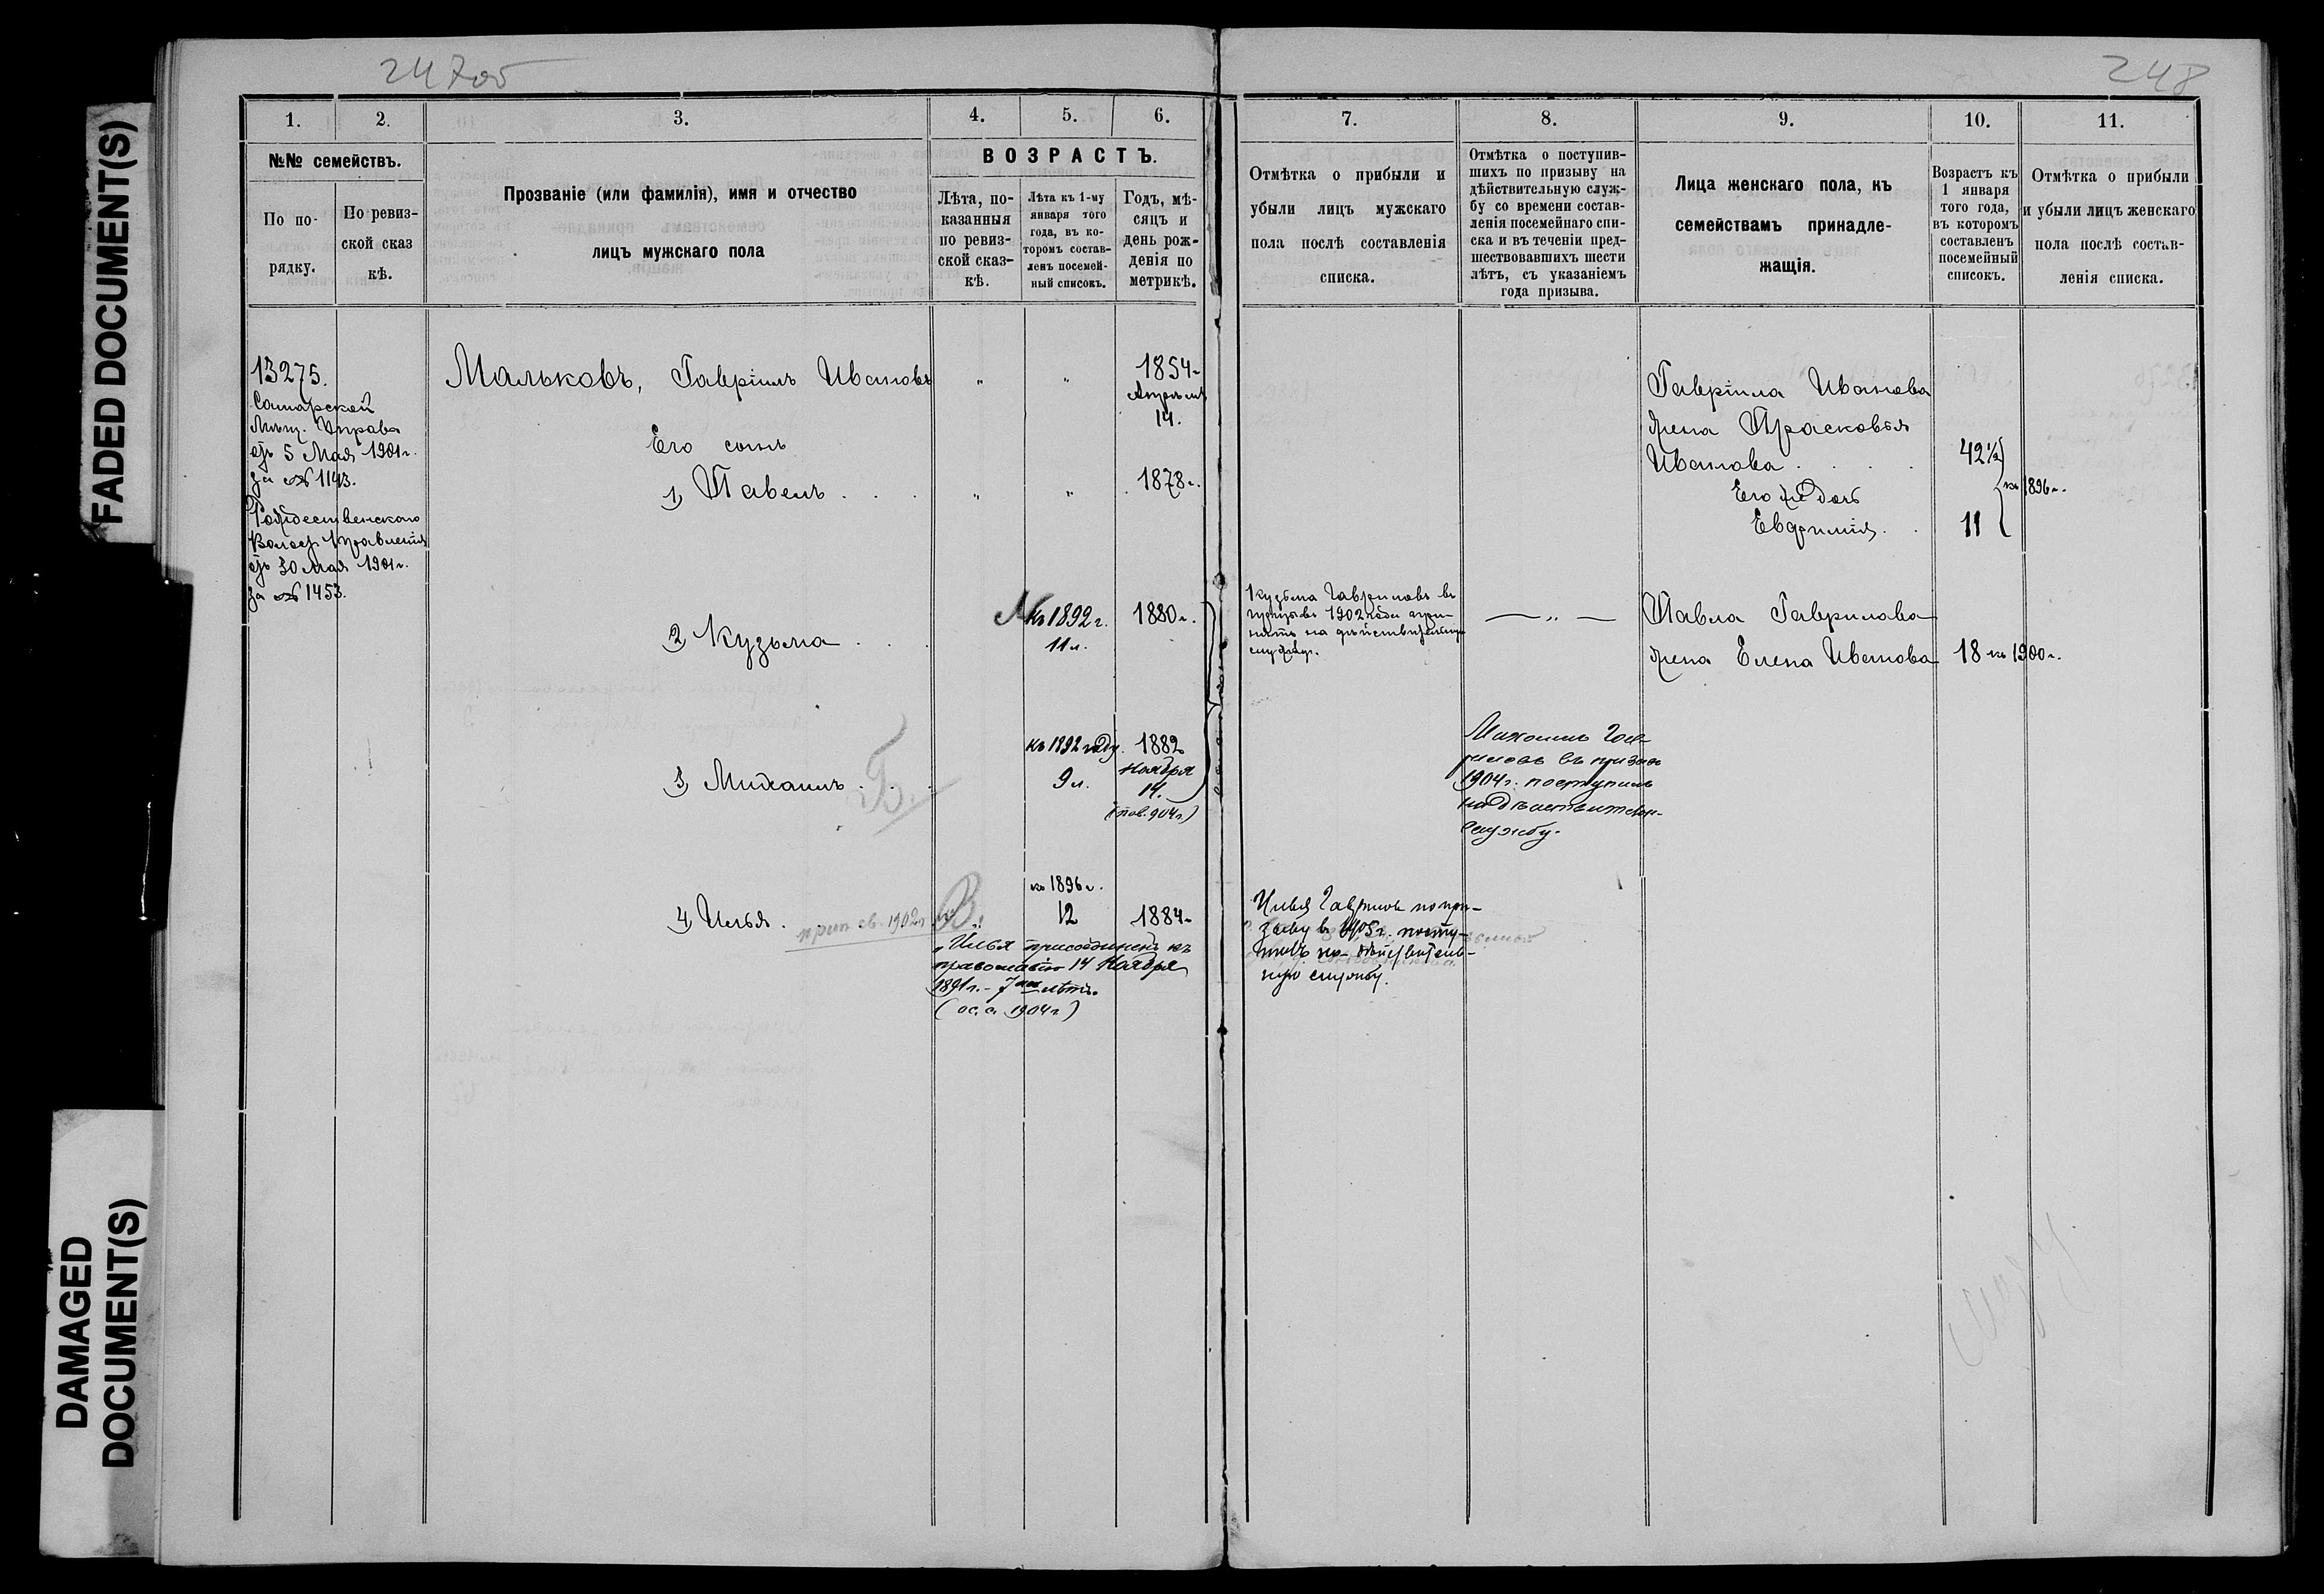 FADED DOCUMENT(S)
DAMAGED
DOCUMENT(S)
247об
1.
2.
3.
4.
5.
6.
№№ семействъ.
По по-
рядку.
По ревиз-
ской сказ
кѣ.
Прозваніе (или фамилія), имя и отчество
лицъ мужскаго пола
ВОЗРАСТЪ.
Лѣта, по-
казанныя
по ревиз-
ской сказ-
кѣ.
Лѣта къ 1-му
января того
года, въ ко-
торомъ состав-
ленъ посемей-
ный списокъ.
Годъ, мѣ-
сяцъ и
день рож-
денія по
метрикѣ.
13275.
Самарской
Мѣщ. Управа
отъ 5 Мая 1901 г.
за № 1143.
Рождественскаго
Волост. Правленія
отъ 30 Мая 1901 г.
за № 1453.
Мальковъ, Гавріилъ Ивановъ
" "
1854
Апрѣля
14.
Его сынъ
1) Павелъ . . .
" "
1878 г.
2) Кузьма . . .
Къ 1892 г.
11 л.
1880 г.
3) Михаилъ . . .
Б.
къ 1892 году.
9 л.
1882
Ноября
14.
(пов. 904 г)
4) Илья . .
прип св. 1902 г
В
къ 1896 г.
12
1884
"Илья присоединенъ къ
православію 14 Ноября
1891 г. - 7ми лѣтъ.
(ос. 1904 г)
248
7.
8.
9.
10.
11.
Отмѣтка о прибыли и
убыли лицъ мужскаго
пола послѣ составленія
списка.
Отмѣтка о поступив-
шихъ по призыву на
дѣйствительную служ-
бу со времени состав-
ленія посемейнаго спи-
ска и въ теченіи пред-
шествовавшихъ шести
лѣтъ, съ указаніемъ
года призыва.
Лица женскаго пола, къ
семействамъ принадле-
жащія.
Возрастъ къ
1 января
того года,
въ которомъ
составленъ
посемейный
списокъ.
Отмѣтка о прибыли
и убыли лицъ женскаго
пола послѣ состав-
ленія списка.
Гавріила Иванова
жена Прасковья
Иванова . . . .
42½
Его же дочь
Евфимія. .
11
къ 1896 г.
Кузьма Гавриловъ въ
призывъ 1902 года при-
нятъ на дѣйствительную
службу.
— " —
Павла Гаврилова
жена Елена Иванова
18 къ 1900 г.
Михаилъ Гав-
риловъ въ призывъ
1904 г. поступилъ
на дѣйствительн.
службу.
Илья Гавриловъ по при-
зыву въ 1905 г. посту-
пилъ на дѣйствитель-
ную службу.